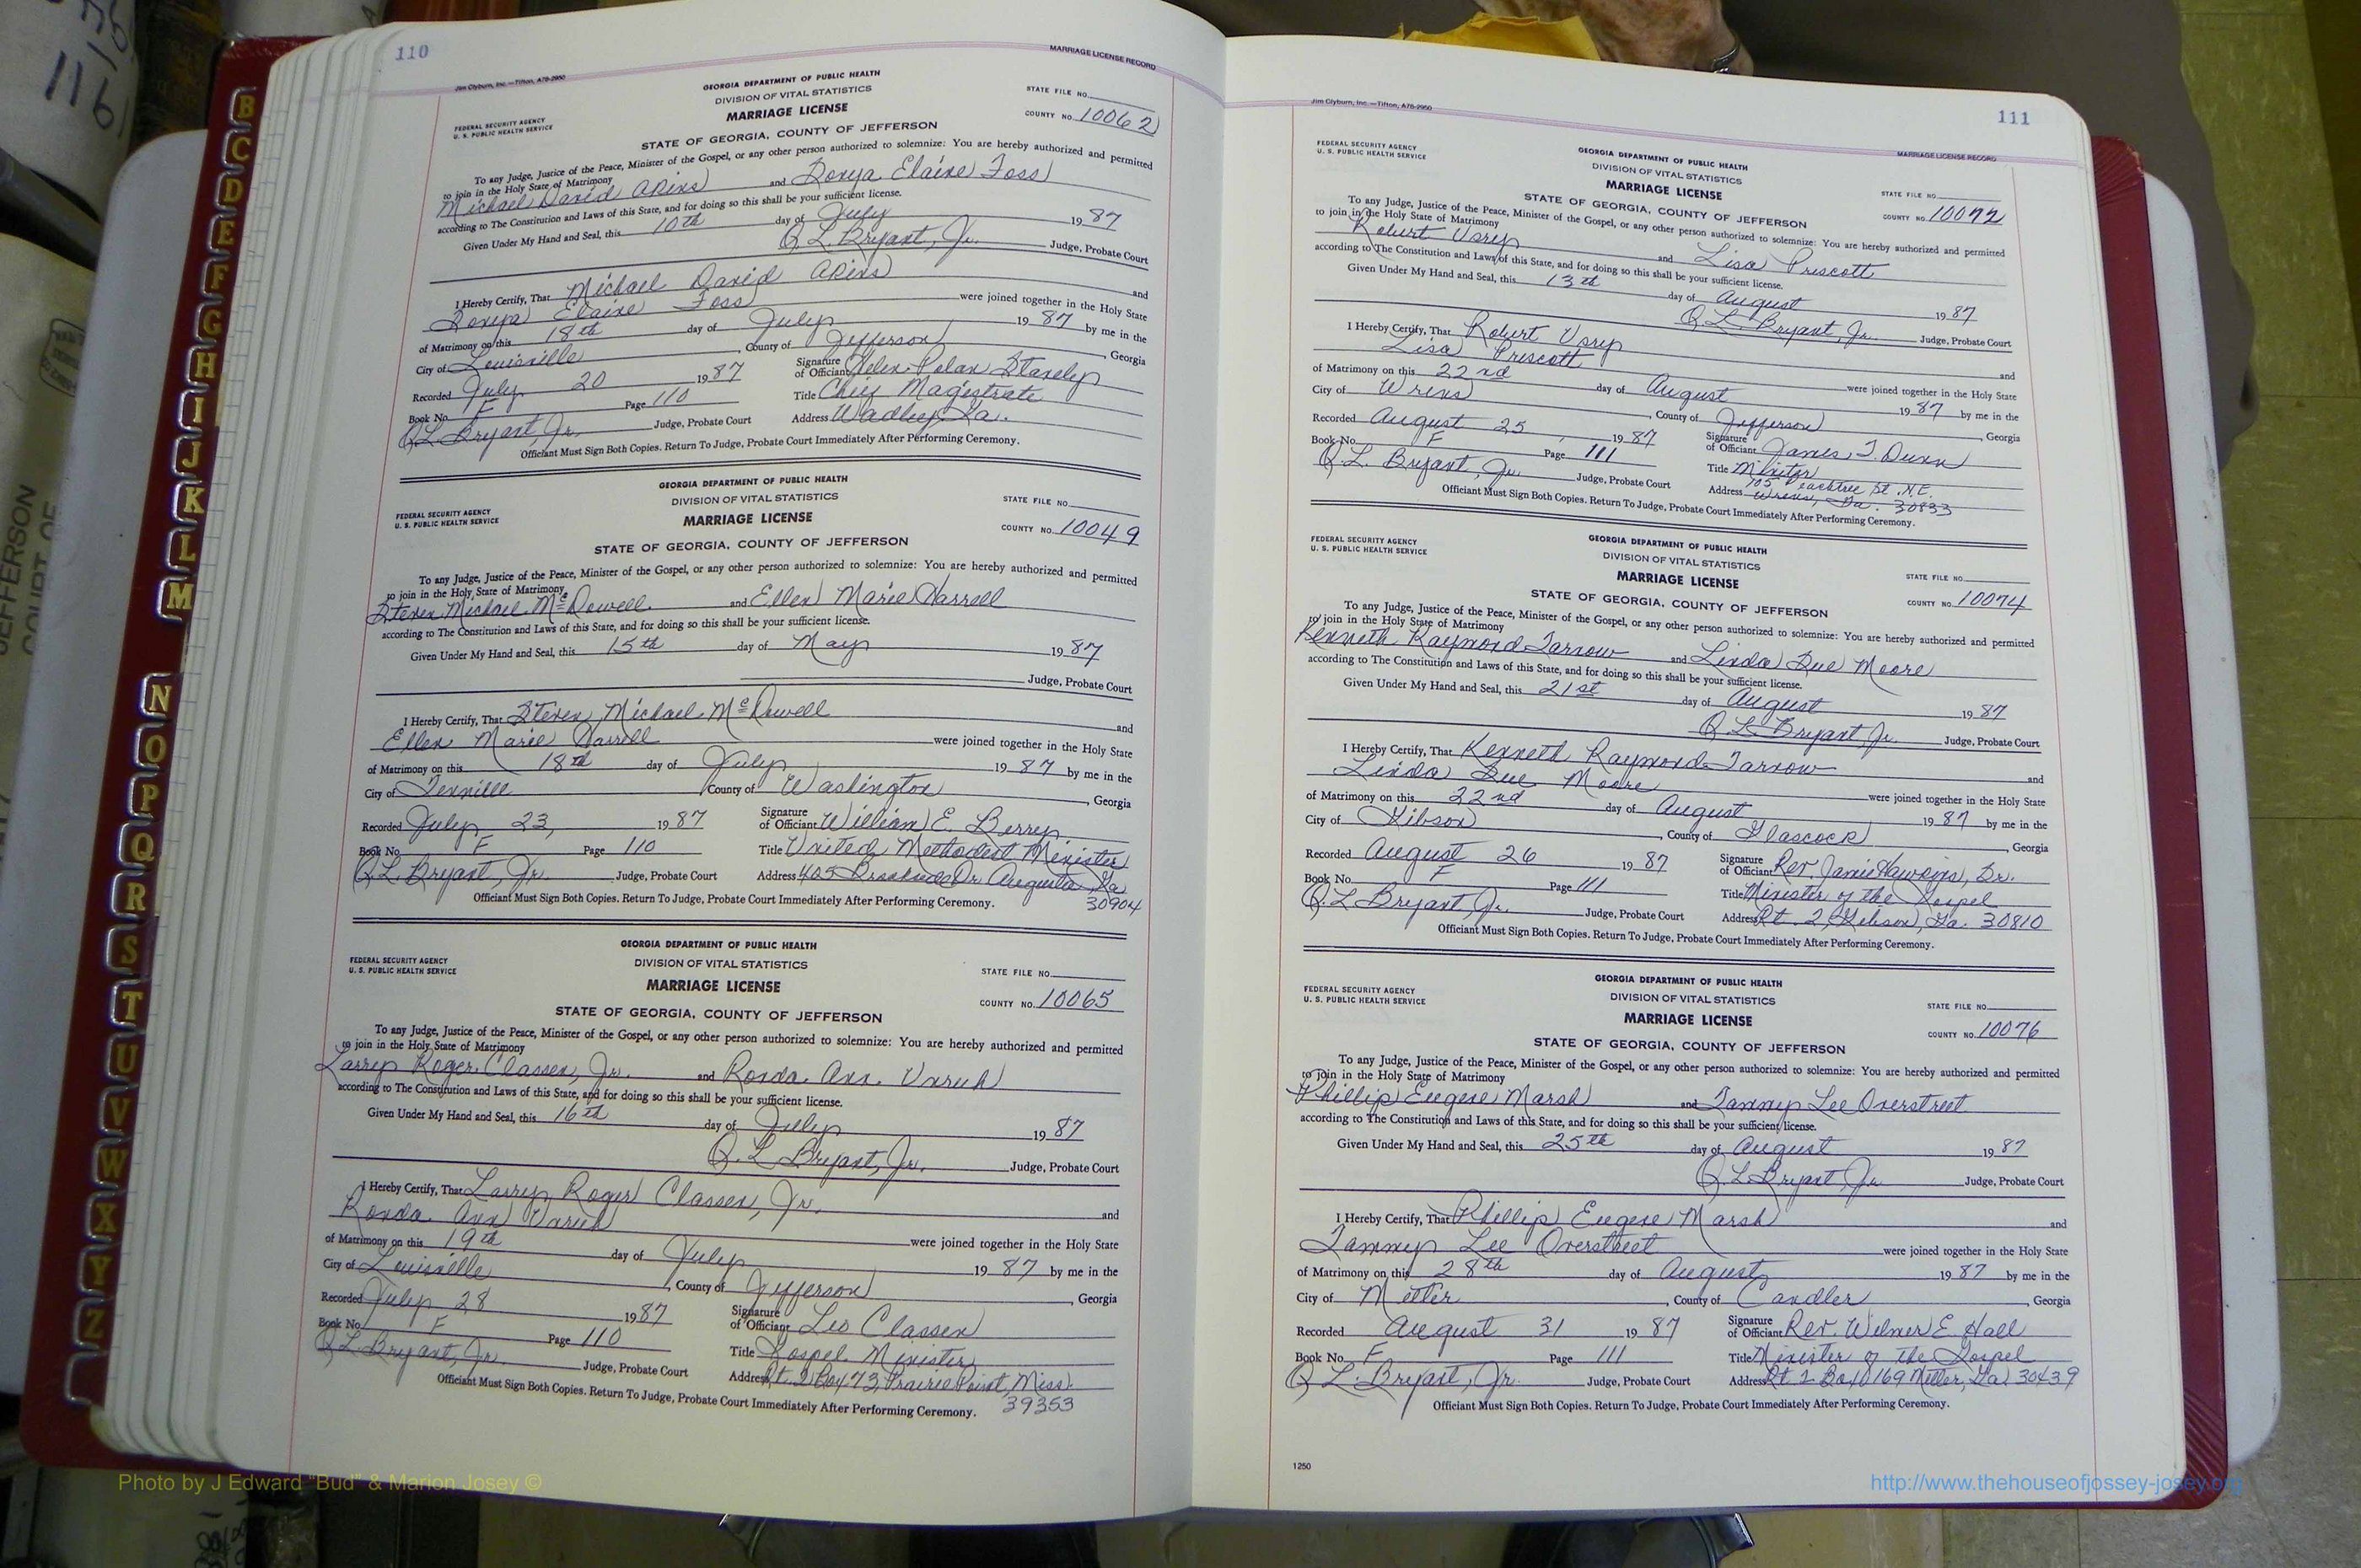 110
Jim Clyburn, Inc.—Tifton, A78-2950
MARRIAGE LICENSE RECORD
GEORGIA DEPARTMENT OF PUBLIC HEALTH
DIVISION OF VITAL STATISTICS
MARRIAGE LICENSE
FEDERAL SECURITY AGENCY
U. S. PUBLIC HEALTH SERVICE
STATE FILE NO.
COUNTY NO. 10062
STATE OF GEORGIA, COUNTY OF JEFFERSON
To any Judge, Justice of the Peace, Minister of the Gospel, or any other person authorized to solemnize: You are hereby authorized and permitted
to join in the Holy State of Matrimony
Michael David Akins and Sonya Elaine Foss
according to The Constitution and Laws of this State, and for doing so this shall be your sufficient license.
Given Under My Hand and Seal, this 10th day of July 1987
Q. L. Bryant, Jr. Judge, Probate Court
I Hereby Certify, That Michael David Akins and
Sonya Elaine Foss were joined together in the Holy State
of Matrimony on this 18th day of July 1987 by me in the
City of Louisville, County of Jefferson, Georgia
Recorded July 20 1987 Signature of Officiant Helen Polan Stanely
Book No. F Page 110 Title Chief Magistrate
Q L Bryant, Jr. Judge, Probate Court Address Wadley, Ga.
Officiant Must Sign Both Copies. Return To Judge, Probate Court Immediately After Performing Ceremony.
GEORGIA DEPARTMENT OF PUBLIC HEALTH
DIVISION OF VITAL STATISTICS
MARRIAGE LICENSE
FEDERAL SECURITY AGENCY
U. S. PUBLIC HEALTH SERVICE
STATE FILE NO.
COUNTY NO. 10049
STATE OF GEORGIA, COUNTY OF JEFFERSON
To any Judge, Justice of the Peace, Minister of the Gospel, or any other person authorized to solemnize: You are hereby authorized and permitted
to join in the Holy State of Matrimony
Steven Michael McDowell and Ellen Marie Harrell
according to The Constitution and Laws of this State, and for doing so this shall be your sufficient license.
Given Under My Hand and Seal, this 15th day of May 1987
Judge, Probate Court
I Hereby Certify, That Steven Michael McDowell and
Ellen Marie Harrell were joined together in the Holy State
of Matrimony on this 18th day of July 1987 by me in the
City of Tennille County of Washington, Georgia
Recorded July 23, 1987 Signature of Officiant William E. Berry
Book No. F Page 110 Title United Methodist Minister
Q.L. Bryant, Jr. Judge, Probate Court Address 405 Dr. Augusta, Ga
30904
Officiant Must Sign Both Copies. Return To Judge, Probate Court Immediately After Performing Ceremony.
GEORGIA DEPARTMENT OF PUBLIC HEALTH
DIVISION OF VITAL STATISTICS
MARRIAGE LICENSE
FEDERAL SECURITY AGENCY
U. S. PUBLIC HEALTH SERVICE
STATE FILE NO.
COUNTY NO. 10065
STATE OF GEORGIA, COUNTY OF JEFFERSON
To any Judge, Justice of the Peace, Minister of the Gospel, or any other person authorized to solemnize: You are hereby authorized and permitted
to join in the Holy State of Matrimony
Larry Roger Classen, Jr. and Ronda Ann Unruh
according to The Constitution and Laws of this State, and for doing so this shall be your sufficient license.
Given Under My Hand and Seal, this 16th day of July 1987
Q. L Bryant, Jr. Judge, Probate Court
I Hereby Certify, That Larry Roger Classen, Jr. and
Ronda Ann Unruh were joined together in the Holy State
of Matrimony on this 19th day of July 1987 by me in the
City of Louisville, County of Jefferson, Georgia
Recorded July 28 1987 Signature of Officiant Leo Classen
Book No. F Page 110 Title Gospel Minister
Q L. Bryant, Jr. Judge, Probate Court Address Rt. 2 Box 73, Prairie Point, Miss.
39353
Officiant Must Sign Both Copies. Return To Judge, Probate Court Immediately After Performing Ceremony.
111
Jim Clyburn, Inc.—Tifton, A78-2950
MARRIAGE LICENSE RECORD
FEDERAL SECURITY AGENCY
U. S. PUBLIC HEALTH SERVICE
GEORGIA DEPARTMENT OF PUBLIC HEALTH
DIVISION OF VITAL STATISTICS
MARRIAGE LICENSE
STATE FILE NO.
COUNTY NO. 10072
STATE OF GEORGIA, COUNTY OF JEFFERSON
To any Judge, Justice of the Peace, Minister of the Gospel, or any other person authorized to solemnize: You are hereby authorized and permitted
to join in the Holy State of Matrimony
Robert Usry and Lisa Prescott
according to The Constitution and Laws of this State, and for doing so this shall be your sufficient license.
Given Under My Hand and Seal, this 13th day of August 1987
Q L Bryant, Jr. Judge, Probate Court
I Hereby Certify, That Robert Usry and
Lisa Prescott were joined together in the Holy State
of Matrimony on this 22nd day of August 1987 by me in the
City of Wrens, County of Jefferson, Georgia
Recorded August 25, 1987 Signature of Officiant James T. Dunn
Book No. F Page 111 Title Minister
Q. L. Bryant, Jr. Judge, Probate Court Address 705 Peachtree St. N.E.
Wrens, Ga. 30833
Officiant Must Sign Both Copies. Return To Judge, Probate Court Immediately After Performing Ceremony.
FEDERAL SECURITY AGENCY
U. S. PUBLIC HEALTH SERVICE
GEORGIA DEPARTMENT OF PUBLIC HEALTH
DIVISION OF VITAL STATISTICS
MARRIAGE LICENSE
STATE FILE NO.
COUNTY NO. 10074
STATE OF GEORGIA, COUNTY OF JEFFERSON
To any Judge, Justice of the Peace, Minister of the Gospel, or any other person authorized to solemnize: You are hereby authorized and permitted
to join in the Holy State of Matrimony
Kenneth Raymond Tarrow and Linda Sue Moore
according to The Constitution and Laws of this State, and for doing so this shall be your sufficient license.
Given Under My Hand and Seal, this 21st day of August 1987
Q L Bryant, Jr. Judge, Probate Court
I Hereby Certify, That Kenneth Raymond Tarrow and
Linda Sue Moore were joined together in the Holy State
of Matrimony on this 22nd day of August 1987 by me in the
City of Gibson, County of Glascock, Georgia
Recorded August 26 1987 Signature of Officiant Rev. Janie Hawkins, Dr.
Book No. F Page 111 Title Minister of the Gospel
Q. L Bryant, Jr. Judge, Probate Court Address Rt. 2, Gibson, Ga. 30810
Officiant Must Sign Both Copies. Return To Judge, Probate Court Immediately After Performing Ceremony.
FEDERAL SECURITY AGENCY
U. S. PUBLIC HEALTH SERVICE
GEORGIA DEPARTMENT OF PUBLIC HEALTH
DIVISION OF VITAL STATISTICS
MARRIAGE LICENSE
STATE FILE NO.
COUNTY NO. 10076
STATE OF GEORGIA, COUNTY OF JEFFERSON
To any Judge, Justice of the Peace, Minister of the Gospel, or any other person authorized to solemnize: You are hereby authorized and permitted
to join in the Holy State of Matrimony
Phillip Eugene Marsh and Tammy Lee Overstreet
according to The Constitution and Laws of this State, and for doing so this shall be your sufficient license.
Given Under My Hand and Seal, this 25th day of August 1987
Q L Bryant, Jr Judge, Probate Court
I Hereby Certify, That Phillip Eugene Marsh and
Tammy Lee Overstreet were joined together in the Holy State
of Matrimony on this 28th day of August 1987 by me in the
City of Metter, County of Candler, Georgia
Recorded August 31 1987 Signature of Officiant Rev. Wilmer E. Hall
Book No. F Page 111 Title Minister of the Gospel
Q L. Bryant, Jr. Judge, Probate Court Address Rt 2 Box 169 Metter, Ga 30439
Officiant Must Sign Both Copies. Return To Judge, Probate Court Immediately After Performing Ceremony.
1250
B
C
D
E
F
G
H
I
J
K
L
M
N
O
P
Q
R
S
T
U
V
W
X
Y
Z
116
JEFFERSON
COURT OF
Photo by J Edward "Bud" & Marion Josey ©
http://www.thehouseofjossey-josey.org